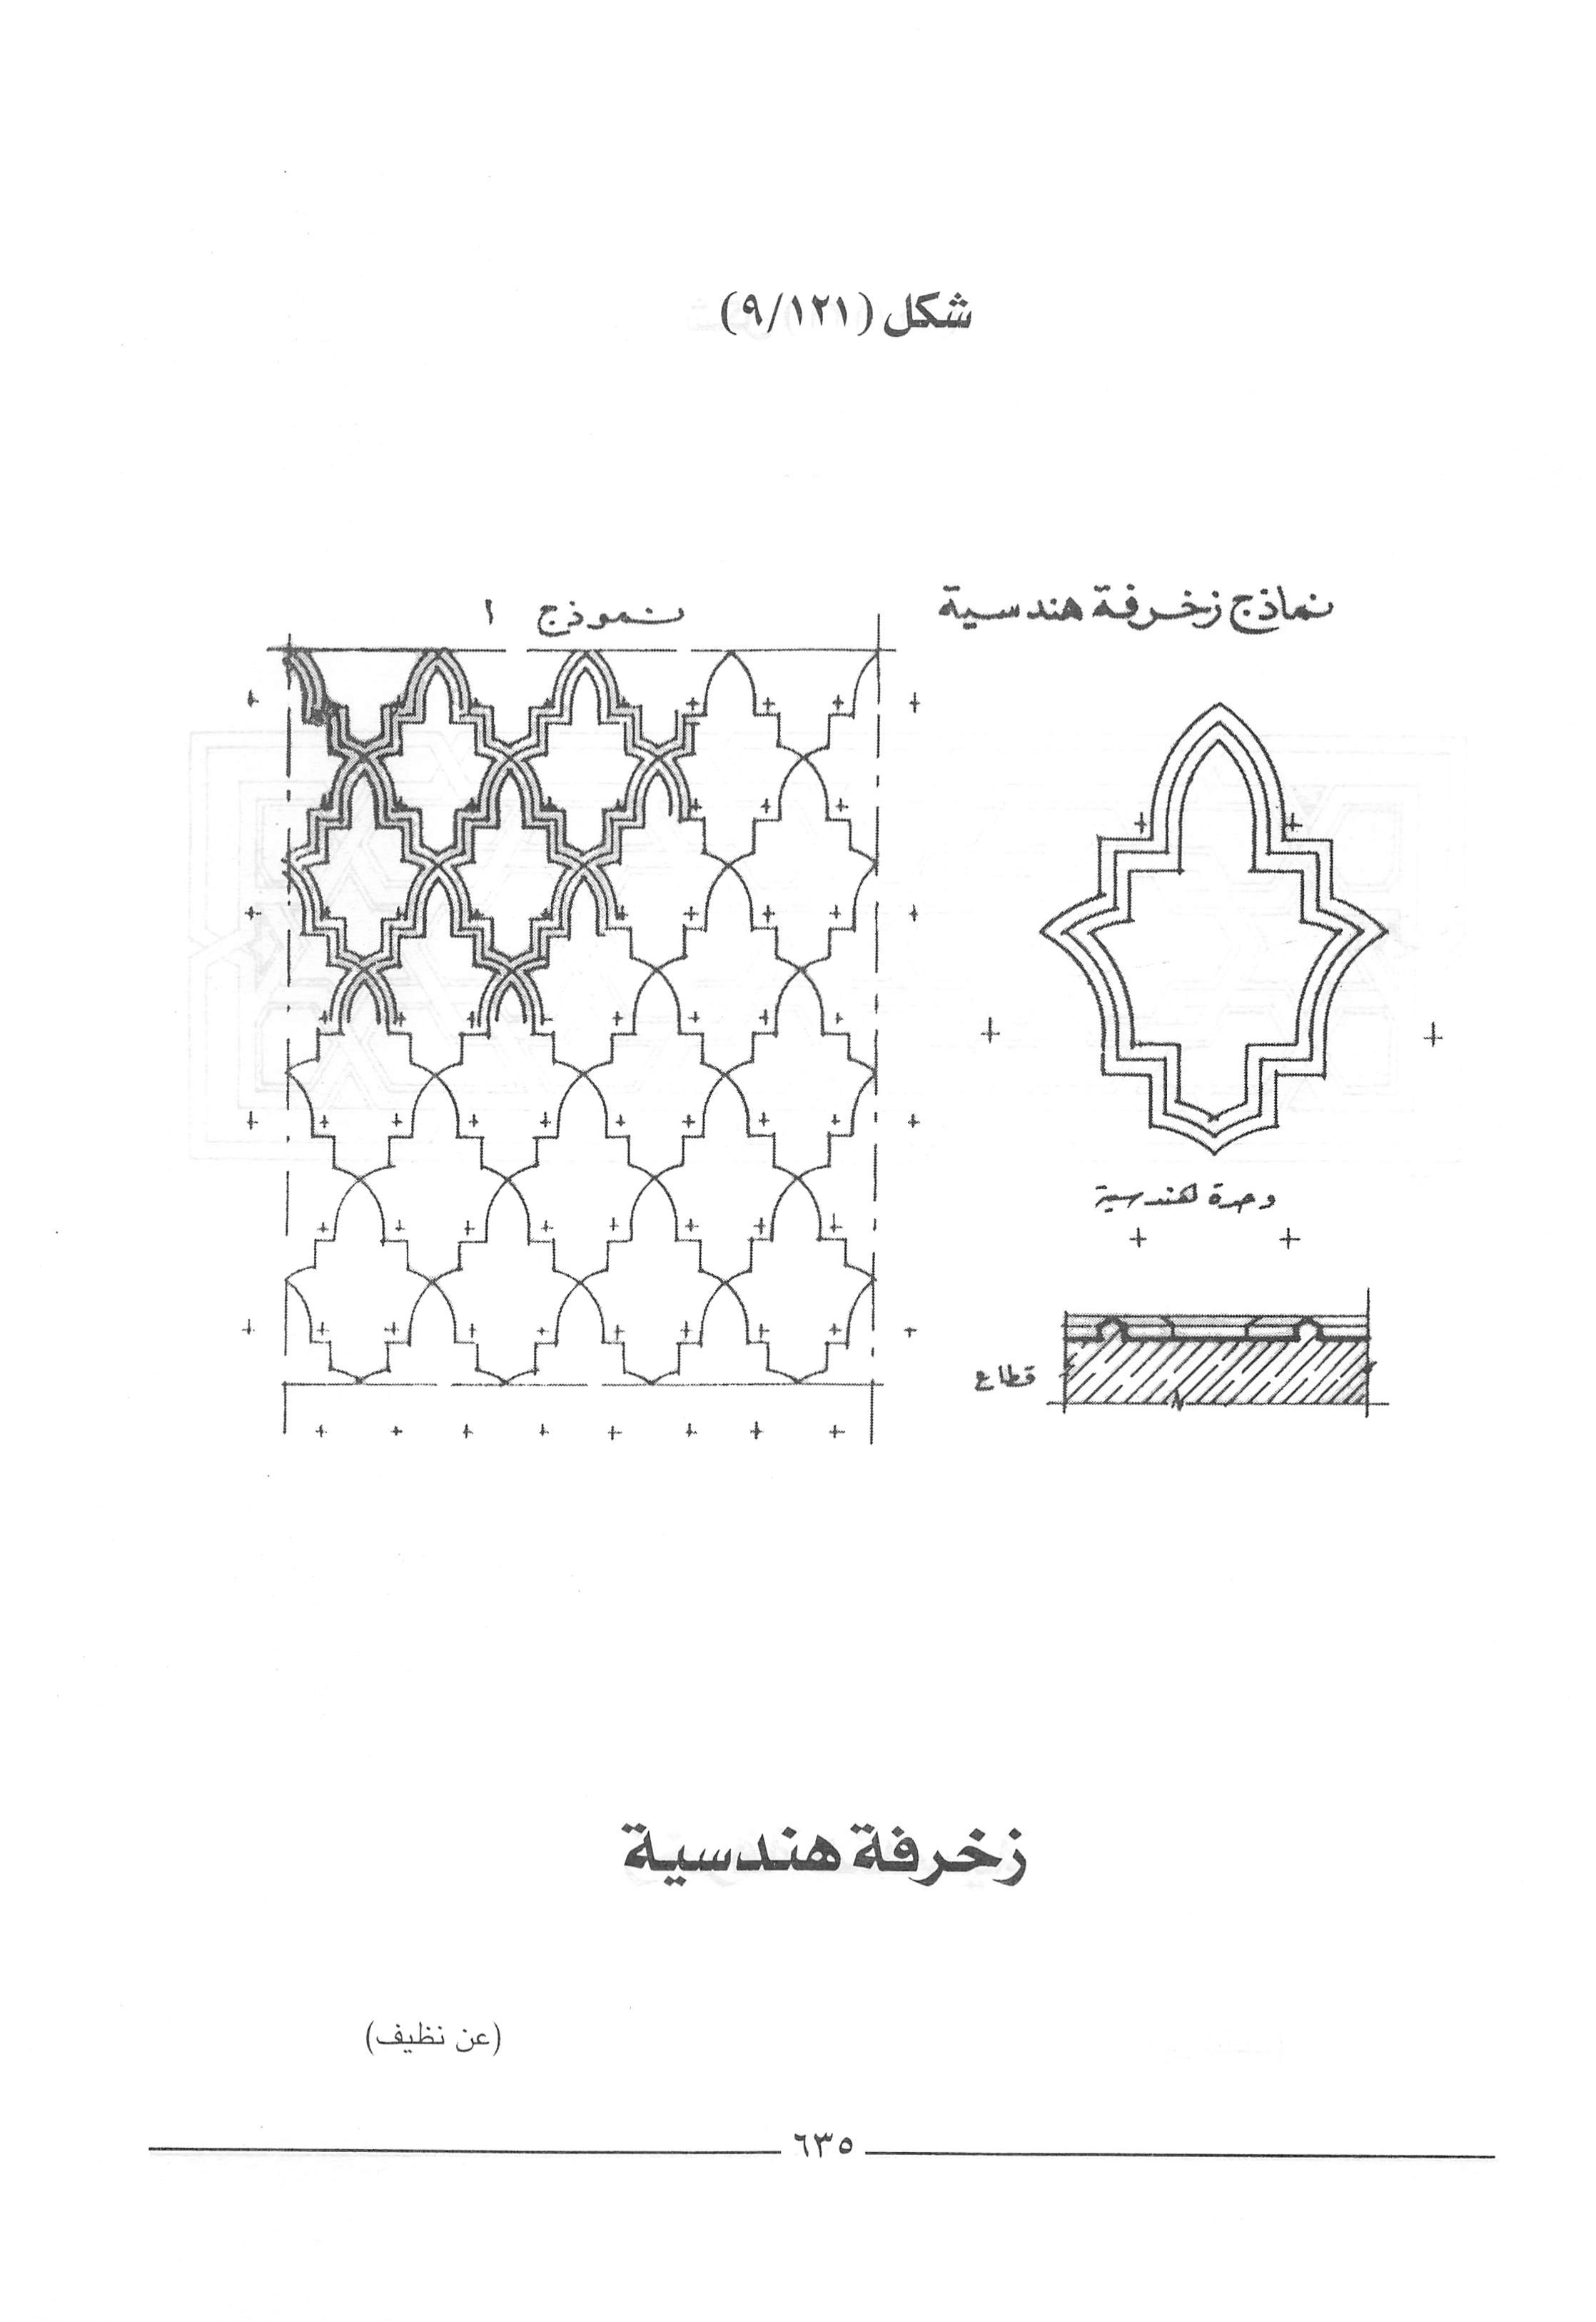 شكل (٩/١٢١)
نماذج زخرفة هندسية
نموذج ١
وحدة هندسية
قطاع
زخرفة هندسية
(عن نظيف)
٦٣٥